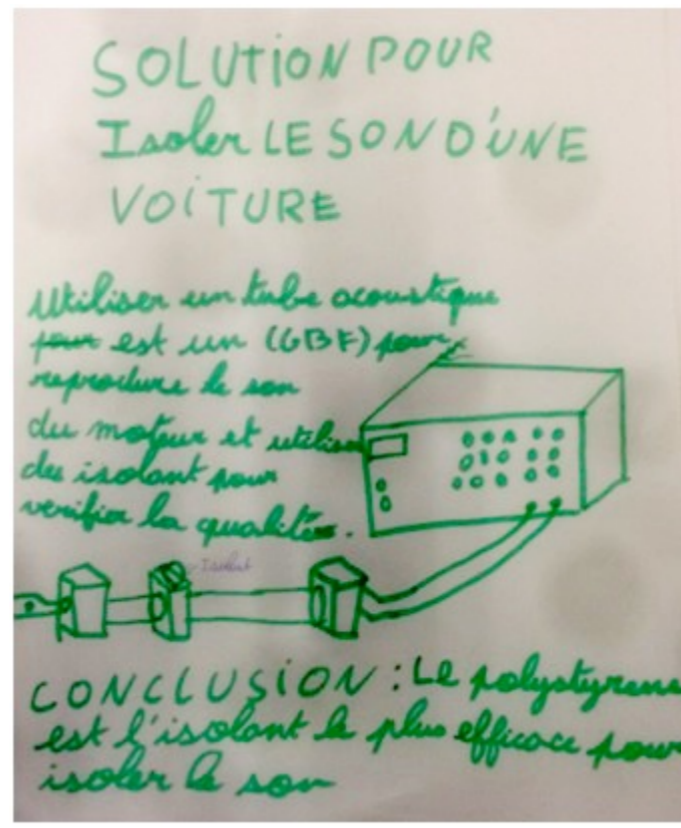 SOLUTION POUR
Isoler LE SON D'UNE
VOITURE
Utiliser un tube acoustique
pour est un (GBF) pour
reproduire le son
du moteur et utiliser
du isolant pour
verifier la qualité.
Isolant
CONCLUSION : Le polystyrene
est l'isolant le plus efficace pour
isoler le son